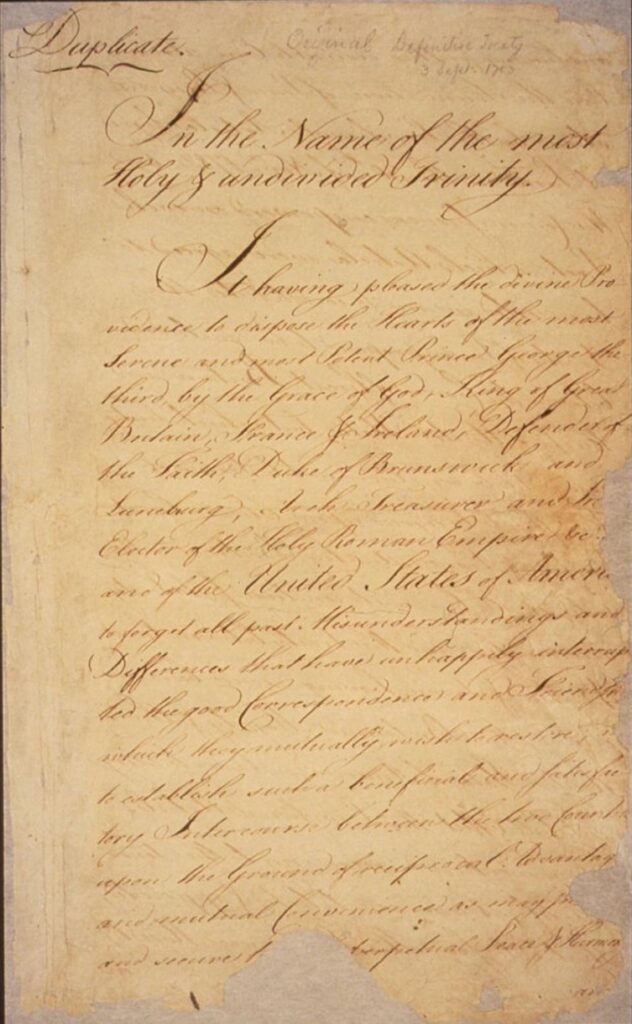 Duplicate.
Original Definitive Treaty
3 Sept. 1783
In the Name of the most
Holy & undivided Trinity.
It having pleased the divine Pro-
vidence to dispose the Hearts of the most
Serene and most Potent Prince George the
third, by the Grace of God, King of Great
Britain, France & Ireland, Defender of
the Faith, Duke of Brunswick and
Luneburg, Arch Treasurer and
Elector of the Holy Roman Empire &c.
and of the United States of Ameri
to forget all past Misunderstandings and
Differences that have unhappily interrup
ted the good Correspondence and Friendsh
which they mutually wish to restore;
to establish such a beneficial and satisfac
tory Intercourse between the two Countr
upon the Ground of reciprocal Advantag
and mutual Convenience as may pr
and secure t perpetual Peace & Harmon
an